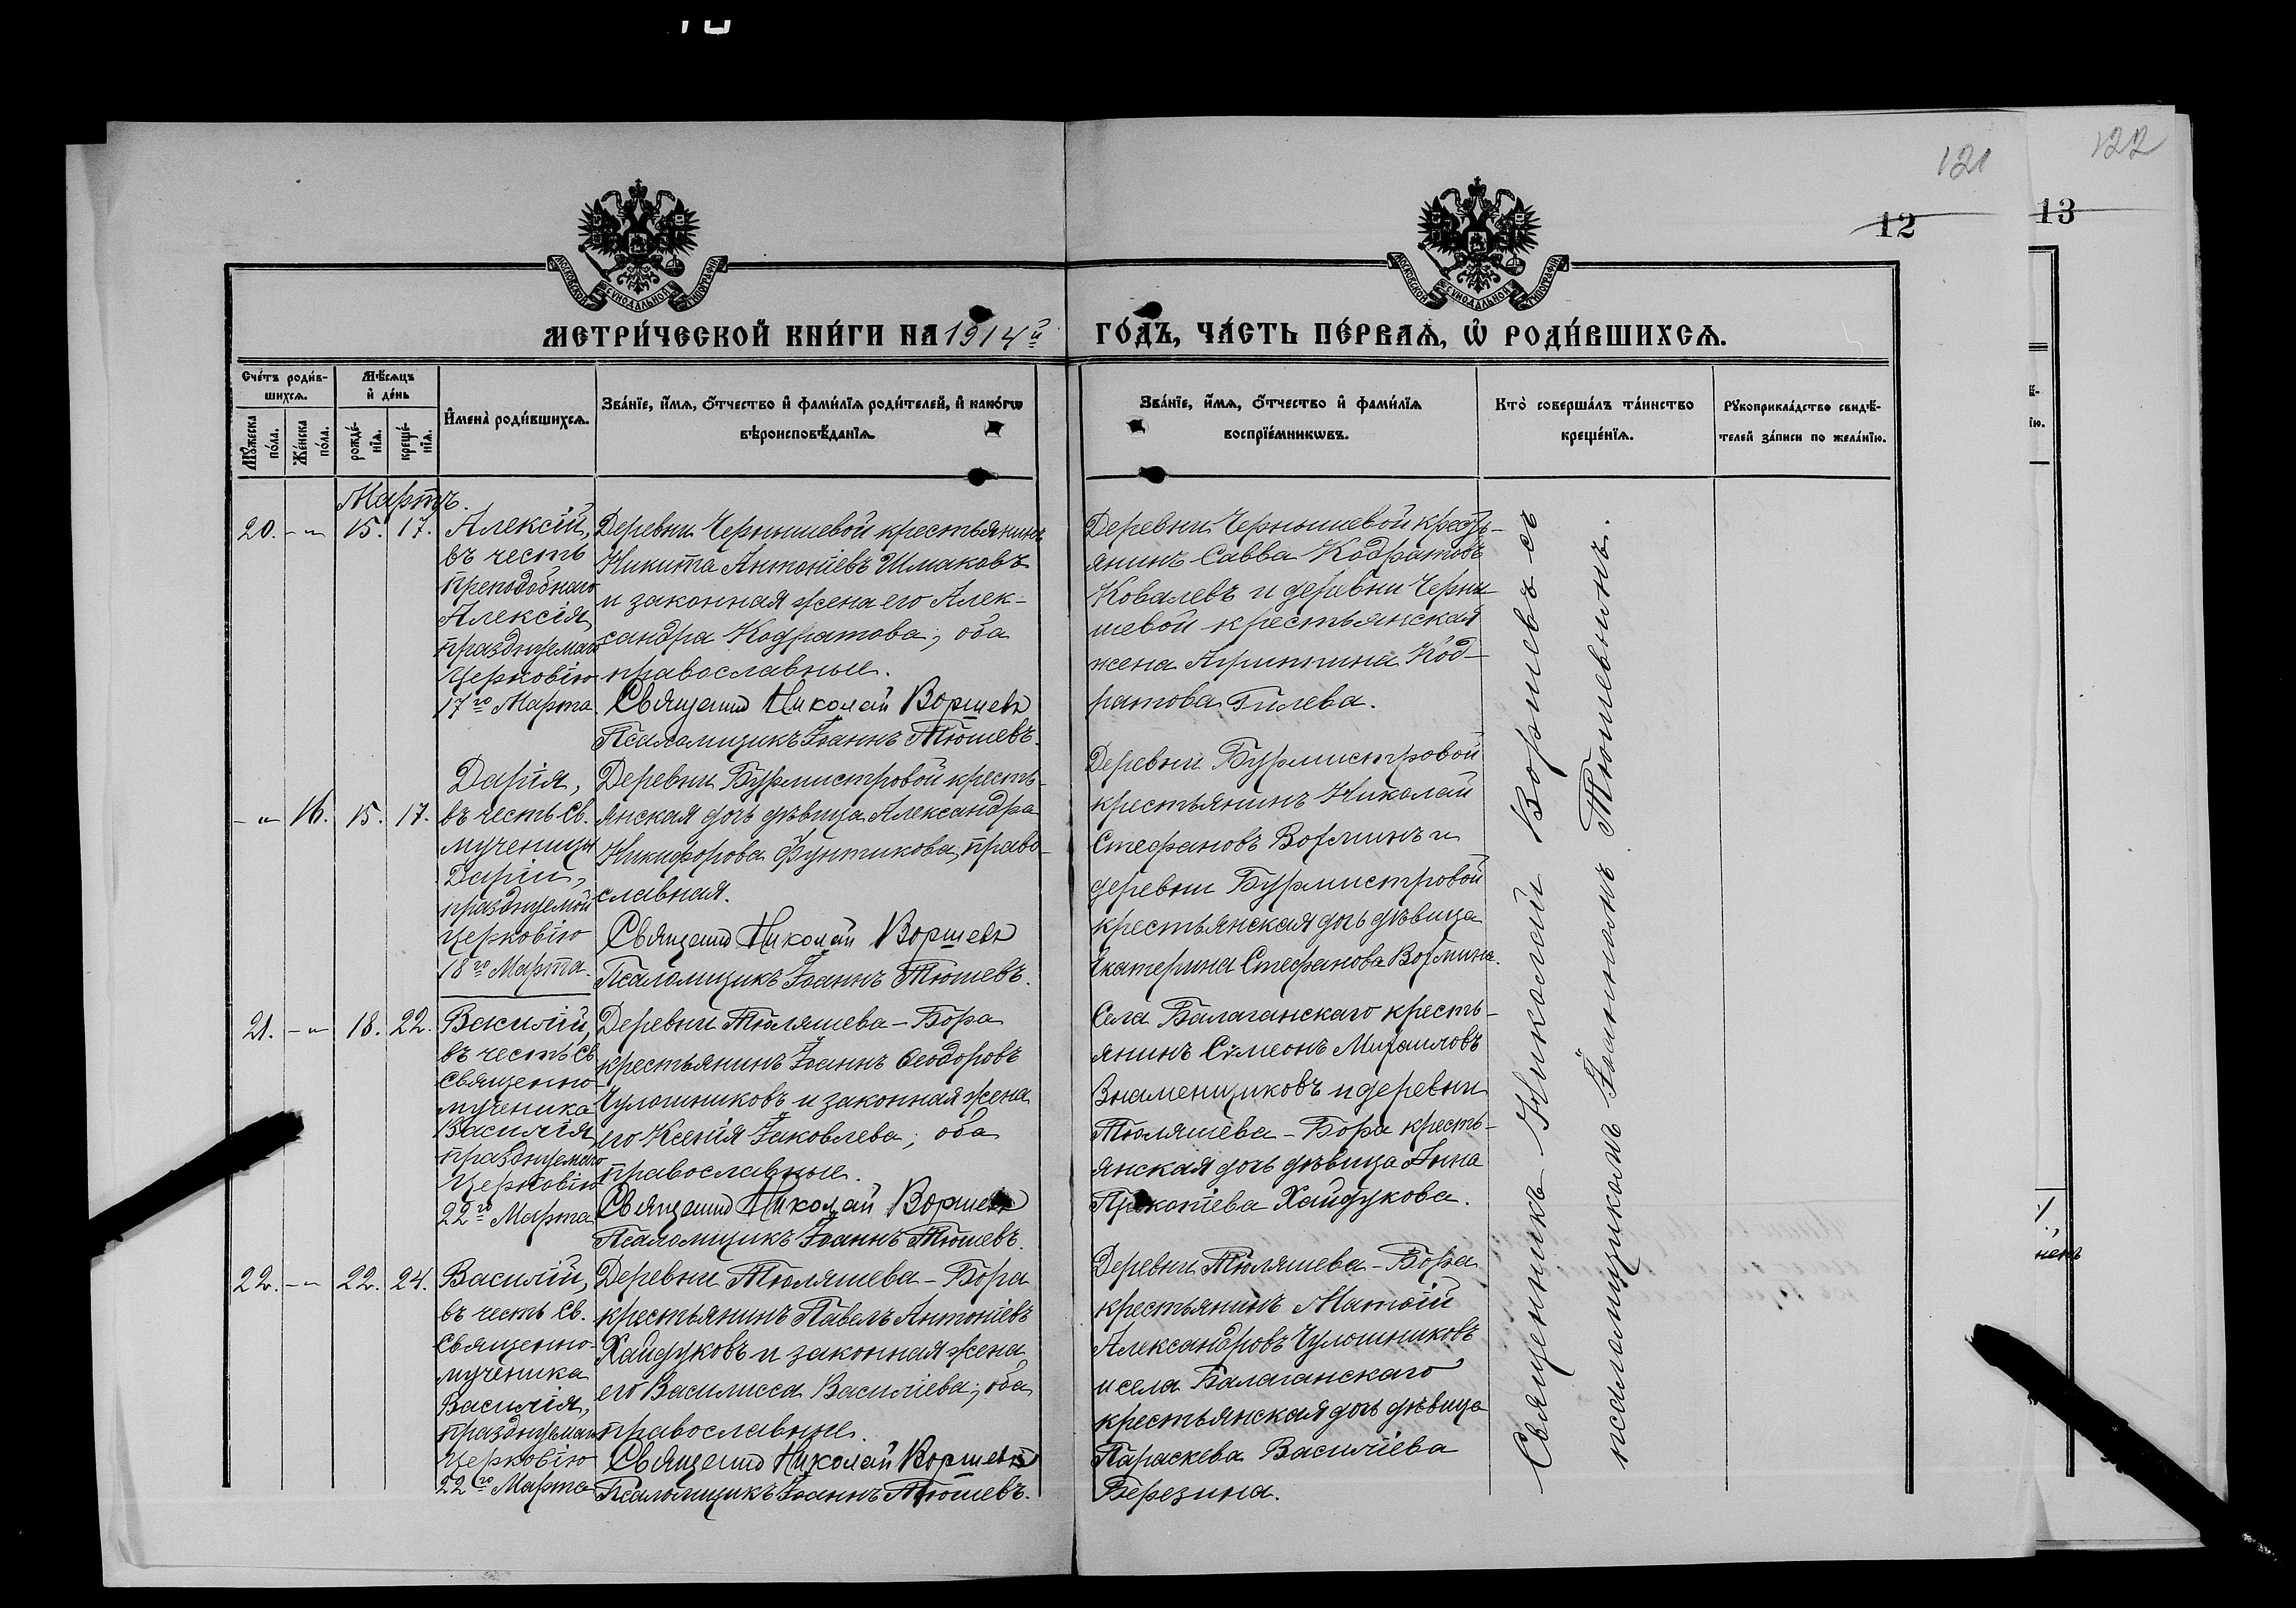 121
122
12
13
МОСКОВСКОЙ СѴНОДАЛЬНОЙ ТИПОГРАФІИ
МОСКОВСКОЙ СѴНОДАЛЬНОЙ ТИПОГРАФІИ
МЕТРИ́ЧЕСКОЙ КНИ́ГИ НА 1914й ГО́ДЪ, ЧА́СТЬ ПЕ́РВАѦ, Ѡ҆ РОДИ́ВШИХСѦ.
Сче́тъ роди́в-
шихсѧ.
Мꙋ́жеска по́ла.
Же́нска по́ла.
Мѣ́сѧцъ
и҆ де́нь
рожде́-
нїѧ.
креще́-
нїѧ.
И҆мена̀ роди́вшихсѧ.
Зва́нїе, и҆́мѧ, ѻ҆́тчество и҆ фами́лїѧ роди́телей, и҆ како́гѡ
вѣроисповѣ́данїѧ.
Зва́нїе, и҆́мѧ, ѻ҆́тчество и҆ фами́лїѧ
воспрїе́мникѡвъ.
Кто̀ соверша́лъ та́инство
креще́нїѧ.
Рꙋкоприкла́дство свидѣ́-
телей за́писи по жела́нїю.
Мартъ.
20. -"- 15. 17.
Алексій,
въ честь
преподобнаго
Алексія,
празднуемаго
Церковію
17го Марта.
Деревни Чернышевой крестьянинъ
Никита Антоніевъ Шмаковъ
и законная жена его Алек-
сандра Кодратова; оба
православные.
Священн Николай Воршевъ
Псаломщикъ Іоаннъ Тюшевъ.
Деревни Чернышевой кресть-
янинъ Савва Кодратовъ
Ковалевъ и деревни Черны-
шевой крестьянская
жена Агриппина Код-
ратова Гилева.
-"- 16. 15. 17.
Дарія,
въ честь Св.
мученицы
Даріи,
празднуемой
Церковію
18го Марта.
Деревни Бурмистровой кресть-
янская дочь дѣвица Александра
Никифорова Фунтикова, право-
славная.
Священн Николай Воршевъ
Псаломщикъ Іоаннъ Тюшевъ.
Деревни Бурмистровой
крестьянинъ Николай
Стефановъ Вохминъ и
деревни Бурмистровой
крестьянская дочь дѣвица
Екатерина Стефанова Вохмина.
21. -"- 18. 22.
Василій,
въ честь Св.
Священно-
мученика
Василія,
празднуемаго
Церковію
22го Марта
Деревни Тюляшева-Бора
крестьянинъ Іоаннъ Ѳеодоровъ
Чулошниковъ и законная жена
его Ксенія Іаковлева; оба
православные.
Священн Николай Воршевъ
Псаломщикъ Іоаннъ Тюшевъ.
Села Балаганскаго кресть-
янинъ Сѵмеонъ Михаиловъ
Знаменщиковъ и деревни
Тюляшева-Бора кресть-
янская дочь дѣвица Анна
Прокопіева Хайдукова.
22. -"- 22. 24.
Василій,
въ честь Св.
Священно-
мученика
Василія,
празднуемаго
Церковію
22го Марта
Деревни Тюляшева-Бора
крестьянинъ Павелъ Антоніевъ
Хайдуковъ и законная жена
его Василисса Василіева; оба
православные.
Священн Николай Воршевъ
Псаломщикъ Іоаннъ Тюшевъ.
Деревни Тюляшева-Бора
крестьянинъ Матѳій
Александровъ Чулошниковъ
и села Балаганскаго
крестьянская дочь дѣвица
Параскева Василіева
Березина.
Священникъ Николай Воршевъ съ
псаломщикомъ Іоанномъ Тюшевымъ.